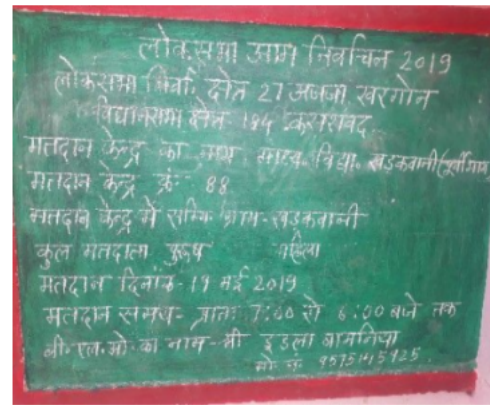 लोकसभा आम निर्वाचन 2019
लोकसभा निर्वा. क्षेत्र 27 अजजा खरगोन
विधानसभा क्षेत्र 184 कसरावद
मतदान केन्द्र का नाम माध्य. विद्या. खडकवानी (पूर्वी भाग)
मतदान केन्द्र क्रं- 88
मतदान केन्द्र में सम्मि ग्राम- खडकवानी
कुल मतदाता पुरुष महिला
मतदान दिनांक- 19 मई 2019
मतदान समय- प्रातः 7:00 से 6:00 बजे तक
बी.एल.ओ. का नाम - श्री इडला बामनिया
मो. नं. 9575145925